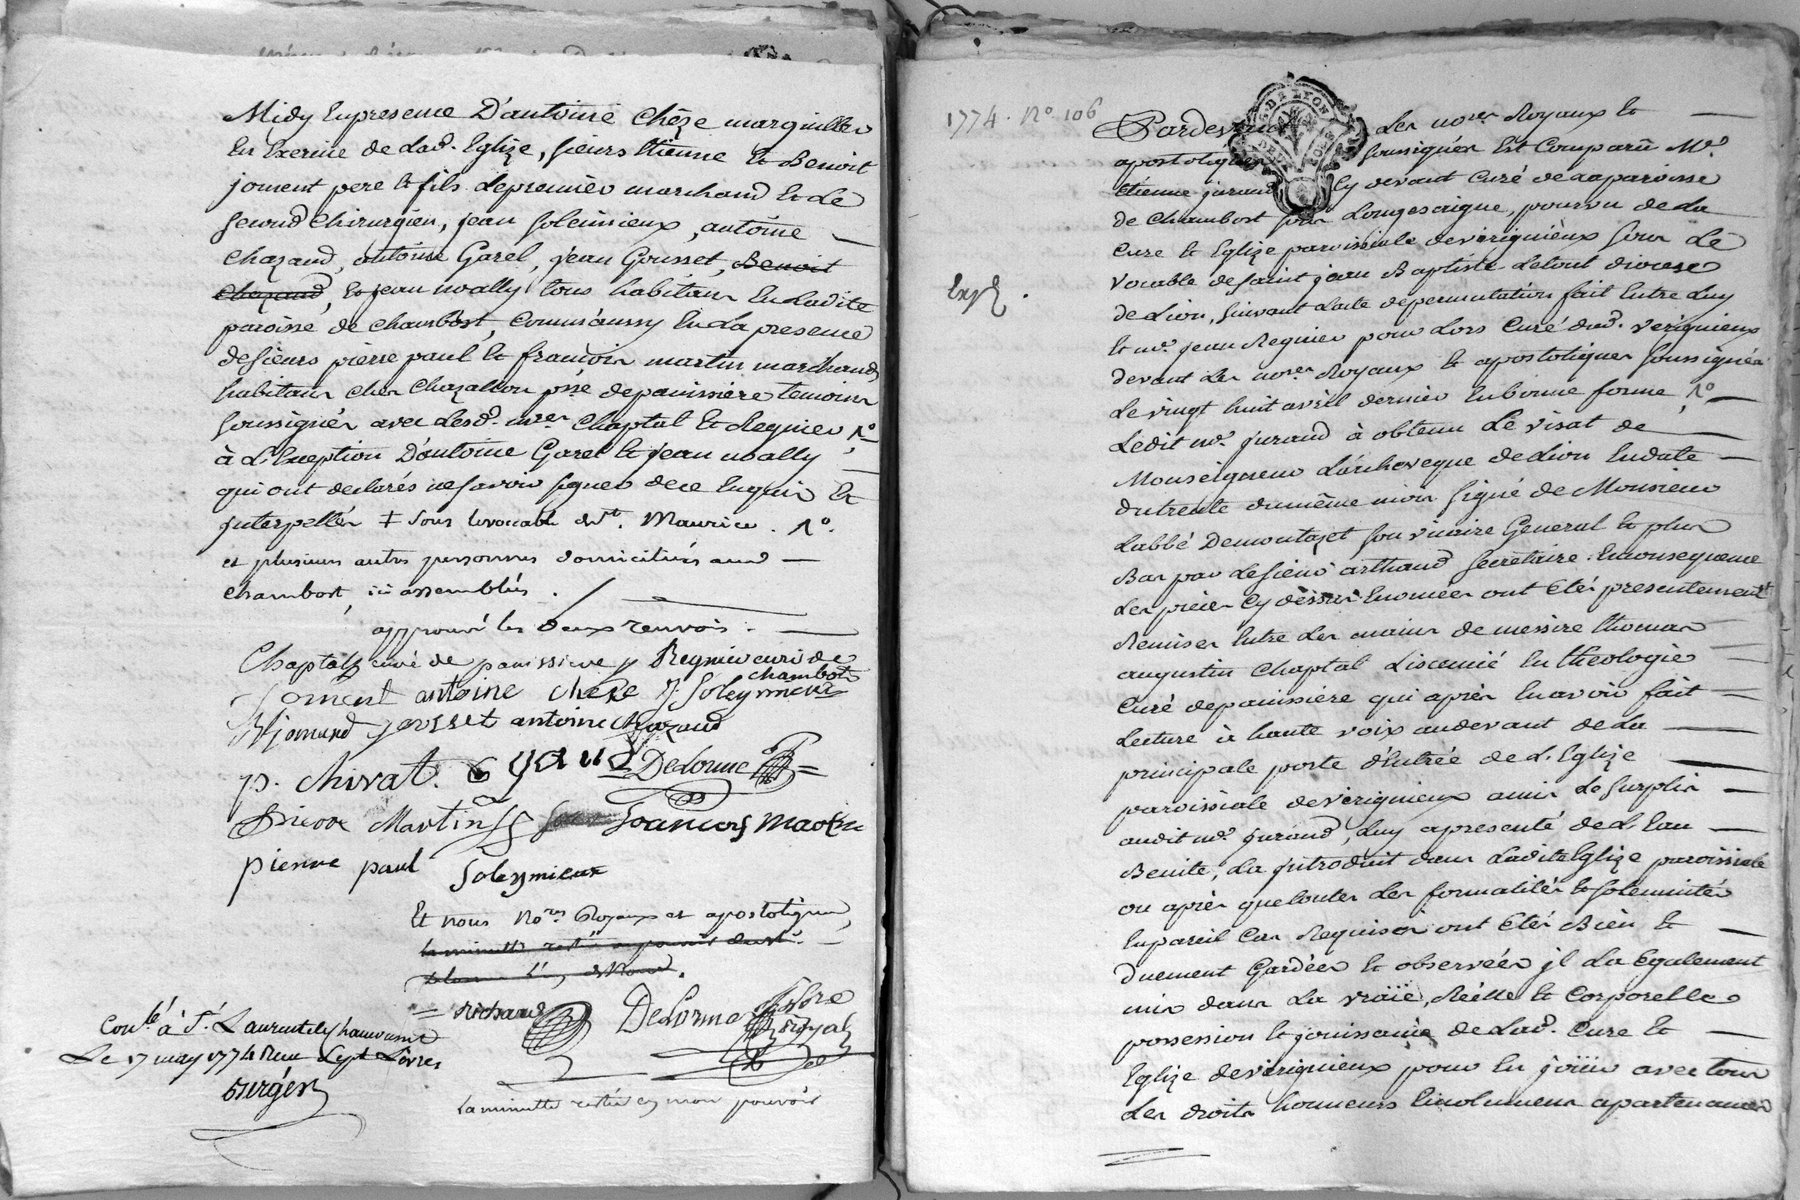 Midy en presence D'antoine Chêze marguiller
En Exercice de Lad. Eglize, sieurs Etienne et Benoit
joment pere et fils Le premier marchand et Le
second Chirurgien, jean Soleimieux, antoine
Chazaud, antoine Garel, jean Gousset, Benoit
Chazaud, et jean wally tous habitans En Ladite
paroisse de Chambost, comm'aussy En La presence
de sieurs pierre paul et francois martin marchands
habitans chez Chazallon psse de panissiere temoins
soussignés avec Lesd. mres Chaptal et Regnier,
à L'Exeption D'antoine Garel et jean wally
qui ont declarés ne savoir signer de ce Enquis et
jnterpellés ‡ sous le vocable de St. Maurice.
et plusieurs autres personnes domiciliés aud
chambost, ici assemblés.
approuvé les deux renvois.
Chaptal curé de panissiere Regnier curé de
chambost
joment antoine cheze J. Soleymieux
B joment gousset antoine chazaud
p. chirat. Gyaud Delorme
Pierre Martin francois martin
pierre paul Soleymieux
Et nous Nores Royaux et apostoliques
la minutte restée au pouvoir dud.
Richard Delorme nore royal
Conlé à St. Laurent de chamousset
Le 17 may 1774 Reçu sept Livres
surgés
La minutte restée en mon pouvoir
1774. No 106
Expd.
G. DE LYON
Pardevant Les nores Royaux et
apostoliques soussignés Est Comparû Mre.
Etienne jurand cy devant Curé de La paroisse
de Chambost sous Longesaigne, pourvu de La
Cure et Eglize paroissiale de virignieux sous Le
vocable de saint jean Baptiste Le tout diocese
de Lion, suivant L'acte de permutation fait Entre Luy
et mre. jean Regnier pour Lors Curé dud. virignieux
devant Les nores Royaux et apostoliques soussignés
Le vingt huit avril dernier En bonne forme,
Ledit mre. jurand à obtenu Le visat de
Monseigneur L'archeveque de Lion En date
du trente du même mois signé de Monsieur
L'abbé Demontazet son vicaire General et plus
Bas par Le sieur arthaud secretaire: En consequence
Les pieces cy dessus Enoncées ont Etés presentement
Remises Entre Les mains de messire thomas
augustin Chaptal Licencié En theologie
Curé de panissiere qui aprés En avoir fait
Lecture à haute voix au devant de La
principale porte d'Entrée de L'Eglize
paroissiale de virignieux a mis Le surplis
audit mre. jurand, Luy a presenté de L'Eau
Benite, L'a jntroduit dans Ladite Eglize paroissiale
ou aprés que toutes Les formalités et solemnités
En pareil Cas Requises ont Etés Bien et
duement Gardées et observées jl L'a Egalement
mis dans La vraïe, Réelle et Corporelle
possession et jouissance de Lad. Cure et
Eglize de virignieux pour En joüir avec tous
Les droits honneurs Emolumens apartenances